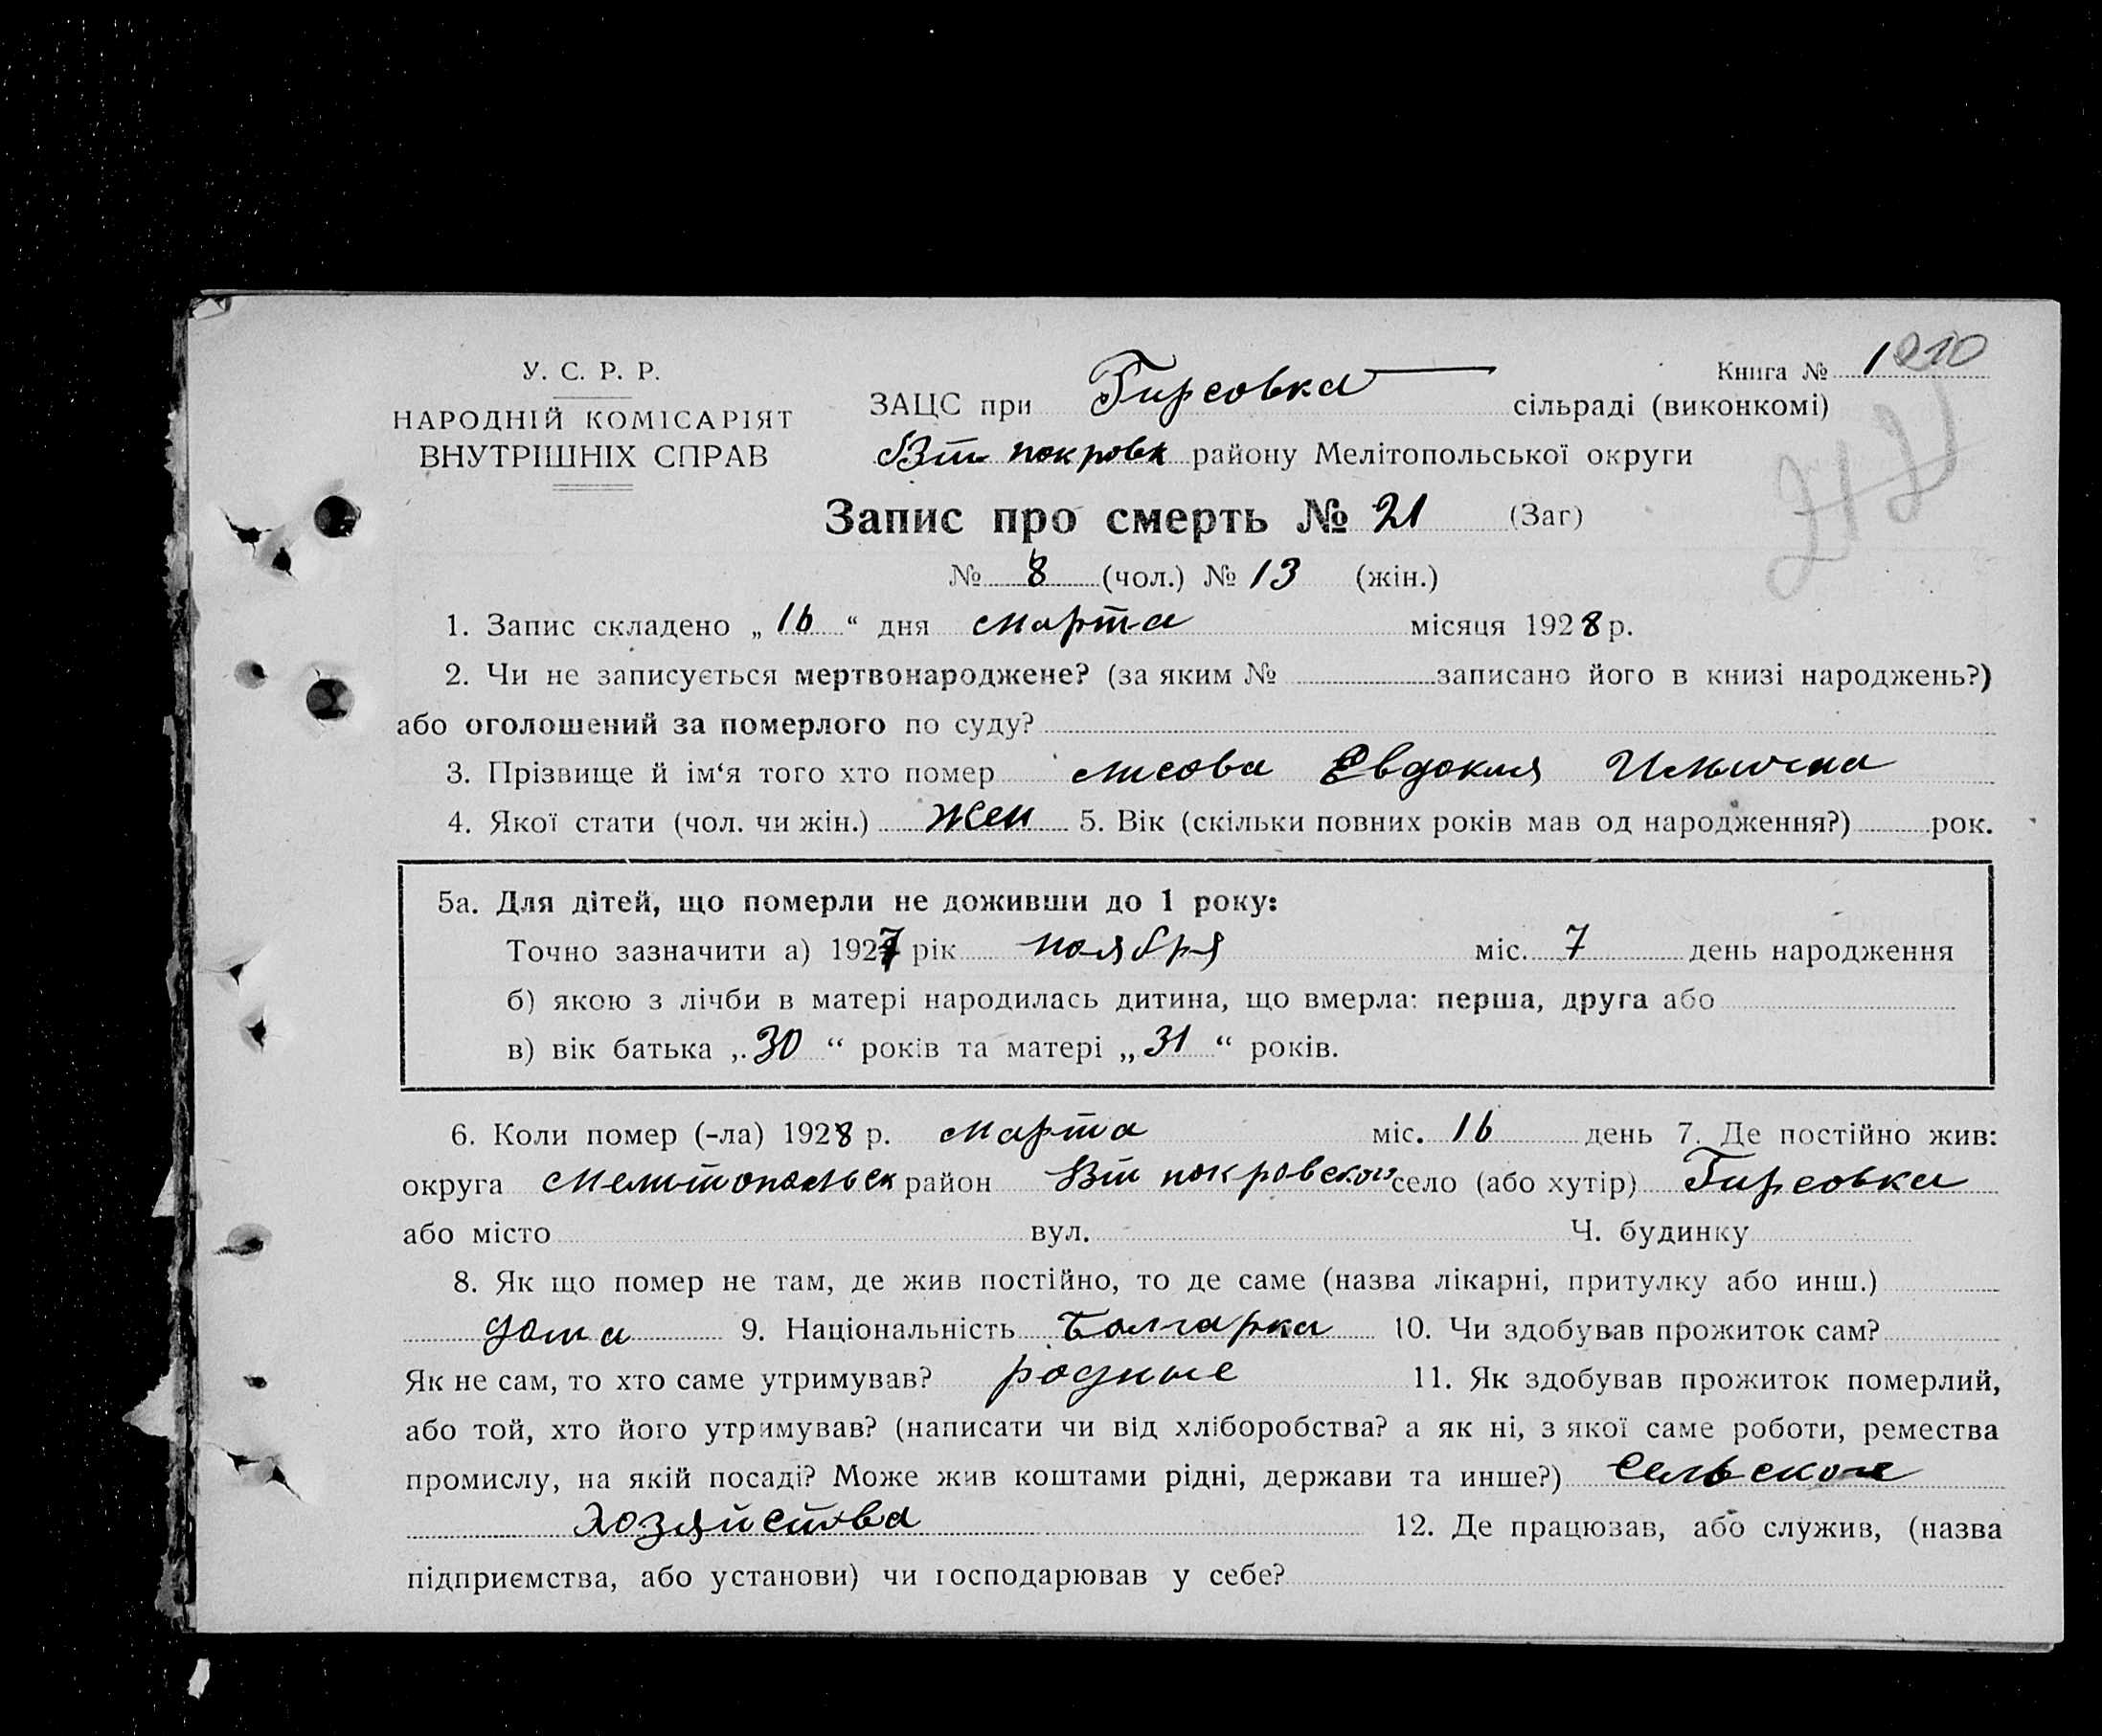 У. С. Р. Р.
НАРОДНІЙ КОМІСАРІЯТ
ВНУТРІШНІХ СПРАВ
Книга № 1 210
ЗАЦС при Гирсовка сільраді (виконкомі)
Вт покровк району Мелітопольської округи
Запис про смерть № 21 (Заг)
№ 8 (чол.) № 13 (жін.)
1. Запис складено „ 16 “ дня марта місяця 1928 р.
2. Чи не записується мертвонароджене? (за яким № записано його в книзі народжень?)
або оголошений за померлого по суду?
3. Прізвище й ім‘я того хто помер Евдокия Ильична
4. Якої стати (чол. чи жін.) жен 5. Вік (скільки повних років мав од народження?) рок.
5а. Для дітей, що померли не доживши до 1 року:
Точно зазначити а) 1927 рік ноября міс. 7 день народження
б) якою з лічби в матері народилась дитина, що вмерла: перша, друга або
в) вік батька „ 30 “ років та матері „ 31 “ років.
6. Коли помер (-ла) 1928 р. марта міс. 16 день 7. Де постійно жив:
округа Мелитопольск район Вт покровског село (або хутір) Гирсовка
або місто вул. Ч. будинку
8. Як що помер не там, де жив постійно, то де саме (назва лікарні, притулку або инш.)
дома 9. Національність болгарка 10. Чи здобував прожиток сам?
Як не сам, то хто саме утримував? родные 11. Як здобував прожиток померлий,
або той, хто його утримував? (написати чи від хліборобства? а як ні, з якої саме роботи, ремества
промислу, на якій посаді? Може жив коштами рідні, держави та инше?) Сельское
хозяйства 12. Де працював, або служив, (назва
підприємства, або установи) чи господарював у себе?